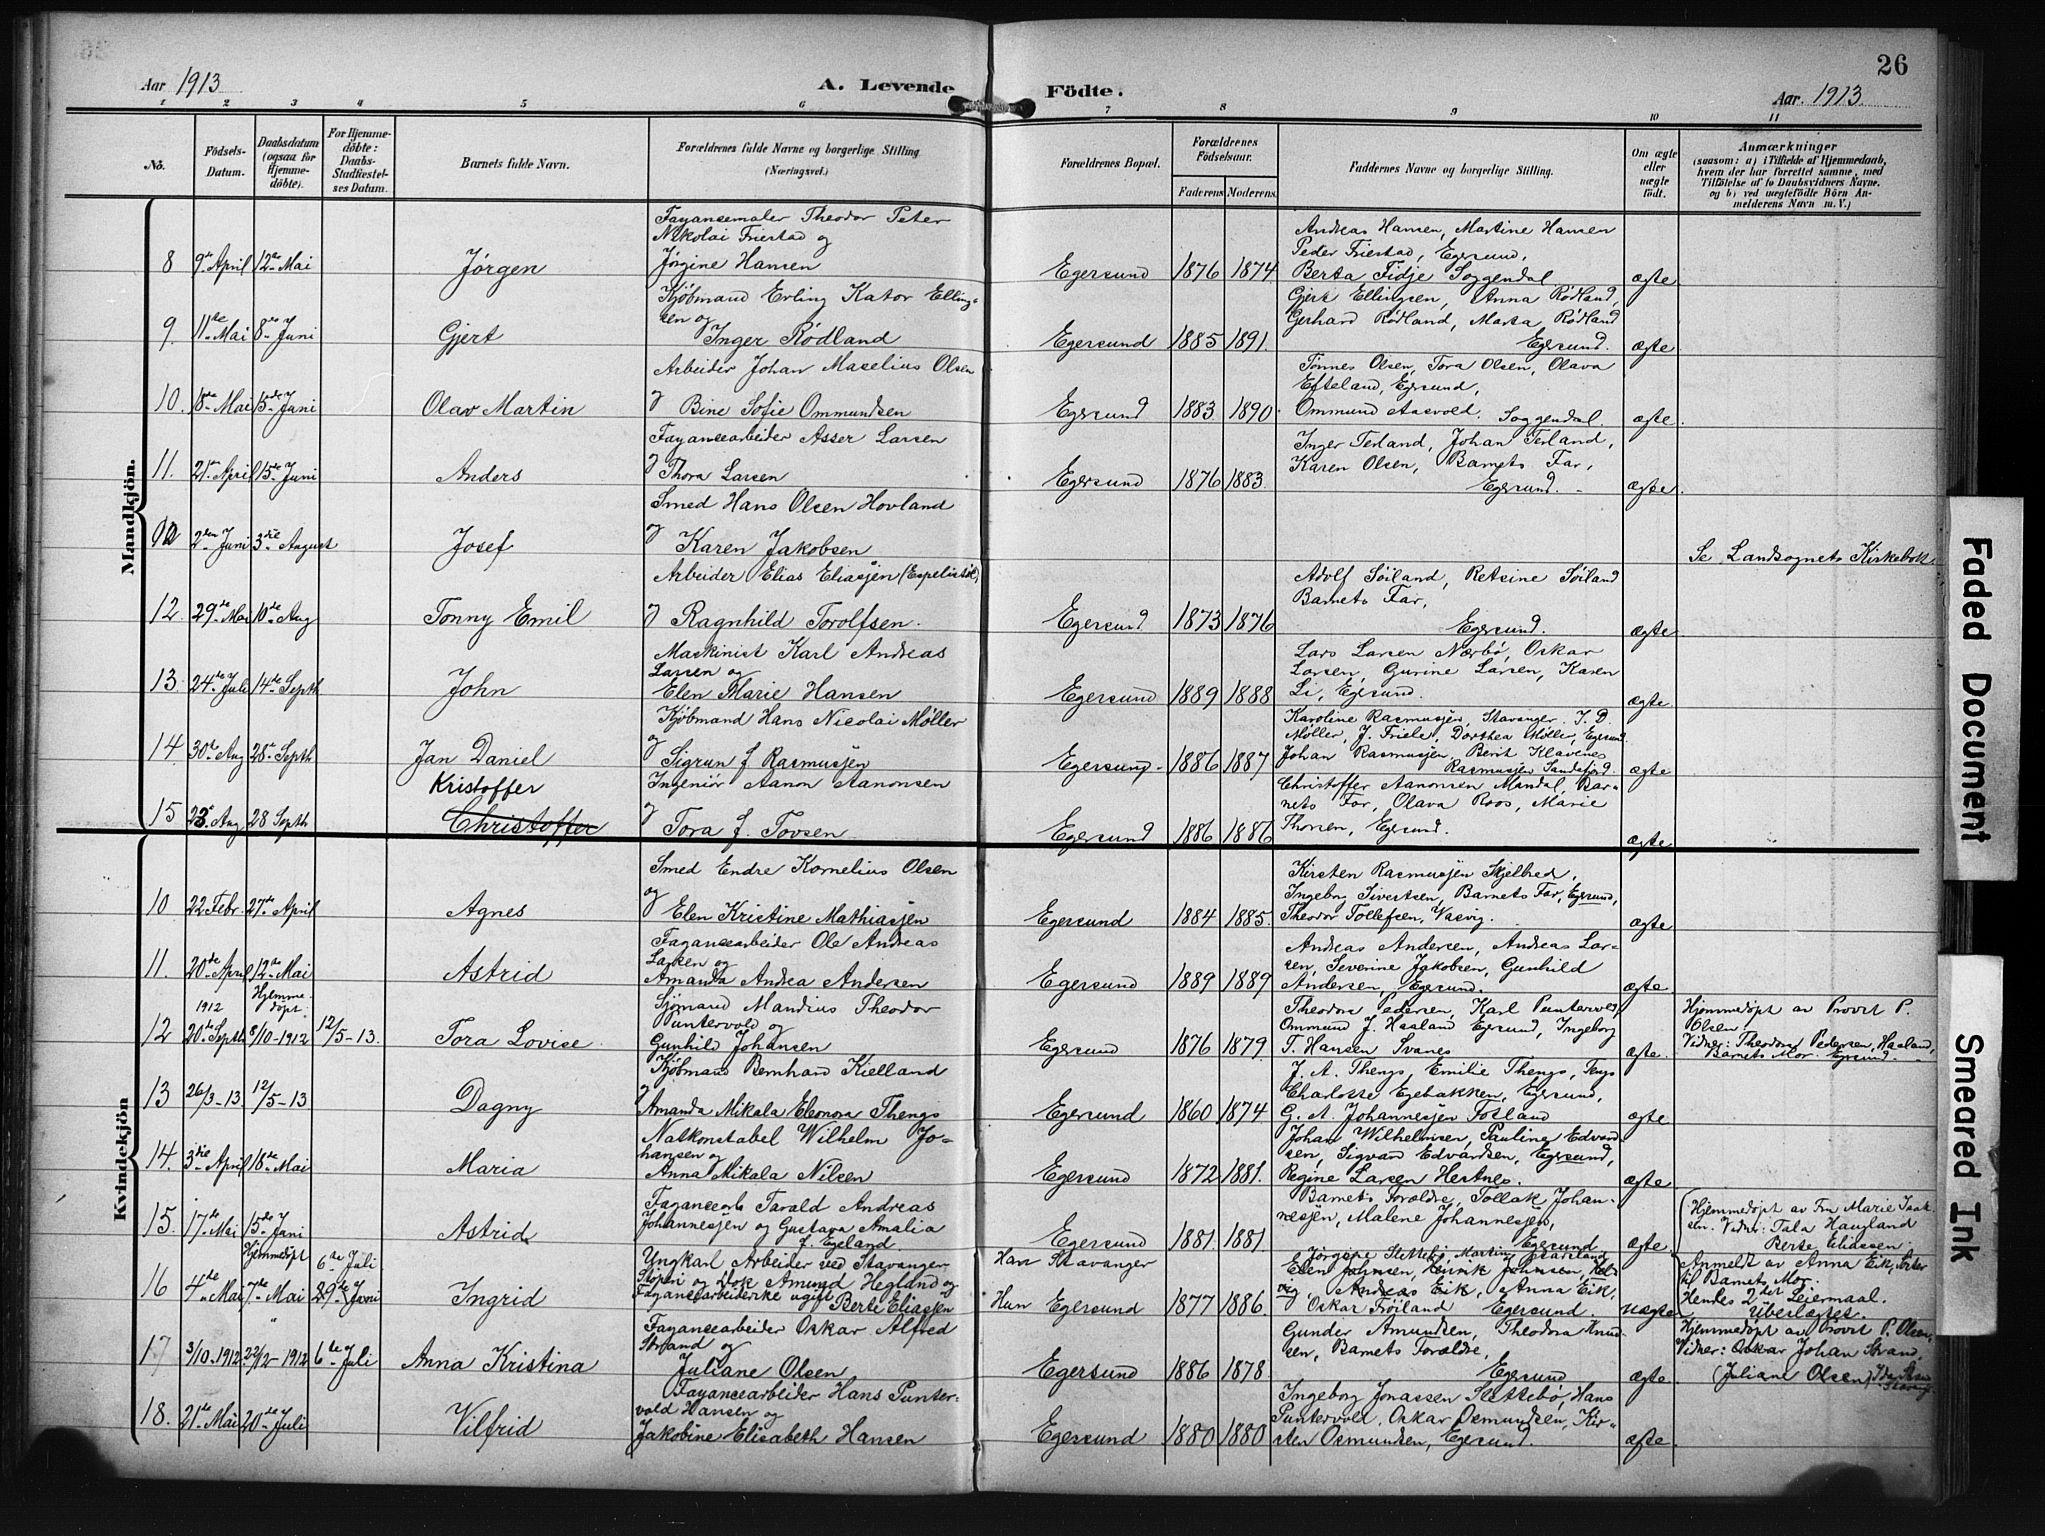 26
Aar 1913
A. Levende Födte.
Aar. 1913
1 2 3 4 5 6 7 8 9 10 11
No.
Födsels-Datum.
Daabsdatum (ogsaa for Hjemme-döbte).
For Hjemme-döbte: Daabs-Stadfæstel-ses Datum.
Barnets fulde Navn.
Forældrenes fulde Navne og borgerlige Stilling
(Næringsvei.)
Forældrenes Bopæl.
Forældrenes Födselsaar.
Faderens Moderens
Faddernes Navne og borgerlige Stilling.
Om ægte eller uægte födt.
Anmærkninger
(saasom: a) i Tilfælde af Hjemmedaab,
hvem der har forrettet samme, med
Tilföielse af to Daabsvidners Navne,
og b) ved uægtefödte Börn An-
melderens Navn m.V.)
Mandkjön.
8 9de April 12te Mai Jørgen
Fayancemaler Theodor Peter
Nikolai Friestad og
Jørgine Hansen
Egersund 1876 1874
Andreas Hansen, Martine Hansen
Peder Friestad, Egersund,
Berta Fidje Soggendal
ægte
9. 11te Mai 8de Juni Gjert
Kjøbmand Erling Kator Elling-
sen og
Inger Rødland
Egersund 1885 1891.
Gjert Ellingsen, Anna Rødland,
Gerhard Rødland, Marta Rødland
Egersund.
ægte
10. 18de Mai 15de Juni Olav Martin
Arbeider Johan Maselius Olsen
og Bine Sofie Ommundsen
Egersund 1883. 1890.
Tønnes Olsen, Tora Olsen, Olava
Efteland, Egersund,
Ommund Aasvold. Soggendal.
ægte.
11. 21de April 15de Juni Anders
Fayancearbeider Asser Larsen
og Thora Larsen
Egersund 1876 1883.
Inger Terland, Johan Terland,
Karen Olsen, Barnets Far,
Egersund.
ægte.
2den Juni 3die August Josef
Smed Hans Olsen Hovland
og Karen Jakobsen
Se Landsognets Kirkebok
12. 29de Mai 10de Aug Tonny Emil
Arbeider Elias Eliasjen
og Ragnhild Torolfsen.
Egersund 1873 1876
Adolf Søiland, Retsine Søiland
Barnets Far,
Egersund.
ægte
13. 24de Juli 14de Septh John
Maskinist Karl Andreas
Larsen og
Elen Marie Hansen
Egersund 1889 1888
Lars Larsen Nærbø, Oskar
Larsen, Gurine Larsen, Karen
Li, Egersund.
ægte
14. 30te Aug 28de Septh Jan Daniel
Kjøbmand Hans Nicolai Møller
og
Sigrun f. Rasmusjen
Egersund 1886 1887
Karoline Rasmusjen, Stavanger. J. D.
Møller, J. Friele, Dorthea Møller, Egersund.
Johan Rasmusjen, Berit Klavenes
Rasmusjen Sandefjord.
ægte
15 23. Aug 28 Septh Kristoffer
Christoffer
Ingeniør Aanon Aanonsen
og Tora f. Tovsen
Egersund 1886 1886
Christoffer Aanonsen Mandal, Bar-
nets Far, Olava Roos, Marie
Thorsen, Egersund.
ægte
Kvindekjön
10 22 Febr. 27de April Agnes
Smed Endre Kornelius Olsen
og
Elen Kristine Mathiasjen
Egersund 1884 1885.
Kirsten Rasmusjen Skjelbred,
Ingeborg Sivertsen, Barnets Far, Egersund,
Theodor Tollefsen, Varvig.
ægte
11. 20de April 12te Mai Astrid
Fayancearbeider Ole Andreas
Larsen og
Amanda Andrea Andersen
Egersund 1889 1889
Andreas Andersen, Andreas Lar-
sen, Severine Jakobsen, Gunhild
Andersen, Egersund.
ægte.
12 1912 20de Septh Hjemme-døpt 8/10-1912 12/5-13. Tora Lovise
Sjømand Mandius Theodor
Puntervold og
Gunhild Johansen
Egersund 1876 1879.
Theodora Pedersen, Karl Puntervold,
Ommund J. Haaland Egersund, Ingeborg
T. Hansen Svanes
ægte.
Hjemmedøpt av Provst P.
Olsen,
Vidner: Theodora Pedersen, Haaland,
Barnets Mor. Egersund.
13 26/3-13 12/5-13 Dagny
Kjøbmand Bernhard Kielland
og Amanda Mikala Eleonora Thengs
Egersund 1860 1874
J. A. Thengs, Emilie Thengs,
Charlotte Egebakken, Egersund,
G. A. Johannesjen Fotland
ægte
14. 3die April 18de Mai Maria
Natkonstabel Wilhelm Jo-
hansen og
Anna Mikala Nilsen
Egersund 1872 1881.
Johan Wilhelmsen, Pauline Edvard
sen, Sigvard Edvardsen, Egersund,
Regine Larsen Hestnes.
ægte
15. 17de Mai 15de Juni Astrid
Fayancearb Tarald Andreas
Johannesjen og Gustava Amalia
f. Egeland.
Egersund 1881. 1881.
Barnets Foreldre, Tollak Johan-
nesjen, Malene Johannesjen,
Egersund
ægte
16 4de Mai Hjemmedøpt 7de Mai 6te Juli 29de Juni Ingrid
Ungkarl Arbeider ved Stavanger
Støperi og Dok Amund Hegland og
Fayancearbeiderske ugift Berte Eliassen
Han Stavanger
Hun Egersund 1877 1886.
Jørgine Slettebø, Martin
Elen Johnsen, Henrik Johnsen,
Andreas Eik, Anna Eik,
Oskar Frøiland Egersund.
uægte
Hjemmedøpt av Fru Marie Isak
sen. Vidner: Tala Haugland
Berte Eliassen.
Anmeldt av Anna Eik, Søster
til Barnets Mor.
Hendes 2det Leiermaal.
Uberlægtet.
17 3/10-1912 22/2-1912 6te Juli Anna Kristina
Fayancearbeider Oskar Alfred
Strand og
Juliane Olsen
Egersund 1886 1878.
Gunder Amundsen, Theodora Knud
sen, Barnets Foreldre,
Egersund
ægte.
Hjemmedøpt av Provst P. Olsen,
Vidner: Oskar Johan Strand,
(Juliane Olsen)
18. 21de Mai 20de Juli Vilfrid
Fayancearbeider Hans Punter-
vold Hansen og
Jakobine Elisabeth Hansen
Egersund 1880 1880
Ingeborg Jonassen Slettebø, Hans
Puntervold, Oskar Osmundsen, Kir-
sten Osmundsen, Egersund.
ægte.
Faded Document
Smeared Ink